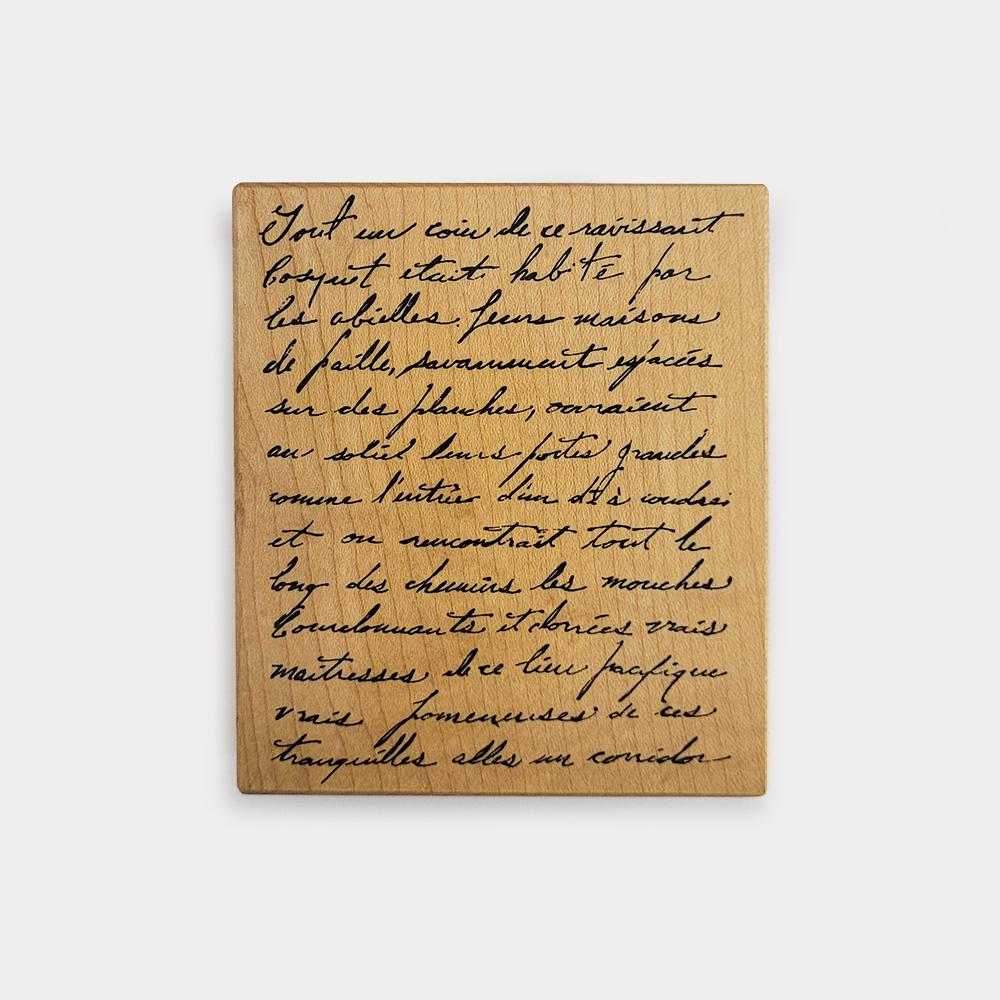 Tout un coin de ce ravissant
bosquet etait habité par
les abielles. leurs maisons
de paille, savamment espacées
sur des planches, ouvraient
au soliel leurs portes grandes
comme l'entrée d'un dè à
et on rencontrait tout le
long des chemins les mouches
bourdonnants et dorées vrais
maitresses de ce lieu pacifique
vrais de ces
tranquilles alles un corridor